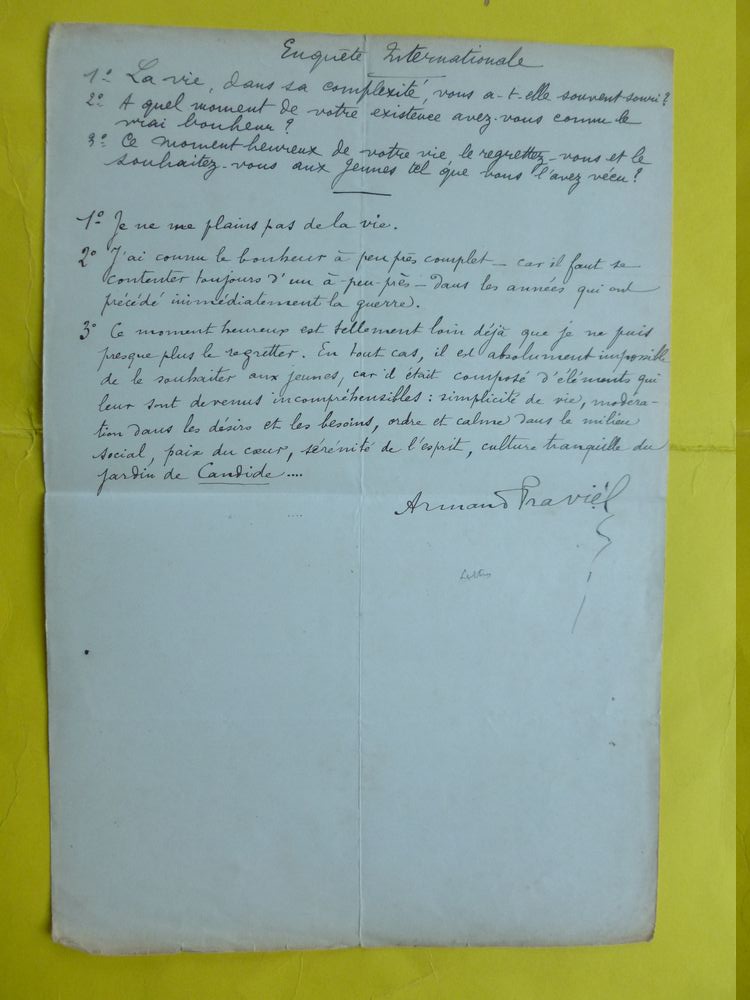 Enquête Internationale
1º La vie, dans sa complexité, vous a-t-elle souvent souri?
2º A quel moment de votre existence avez-vous connu le
vrai bonheur?
3º Ce moment heureux de votre vie, le regrettez-vous et le
souhaitez-vous aux jeunes tel que vous l'avez vécu?
1º Je ne me plains pas de la vie.
2º J'ai connu le bonheur à peu près complet — car il faut se
contenter toujours d'un à-peu-près — dans les années qui ont
précédé immédiatement la guerre.
3º Ce moment heureux est tellement loin déjà que je ne puis
presque plus le regretter. En tout cas, il est absolument impossible
de le souhaiter aux jeunes, car il était composé d'éléments qui
leur sont devenus incompréhensibles : simplicité de vie, modéra-
tion dans les désirs et les besoins, ordre et calme dans le milieu
social, paix du cœur, sérénité de l'esprit, culture tranquille du
jardin de Candide....
Armand Praviel